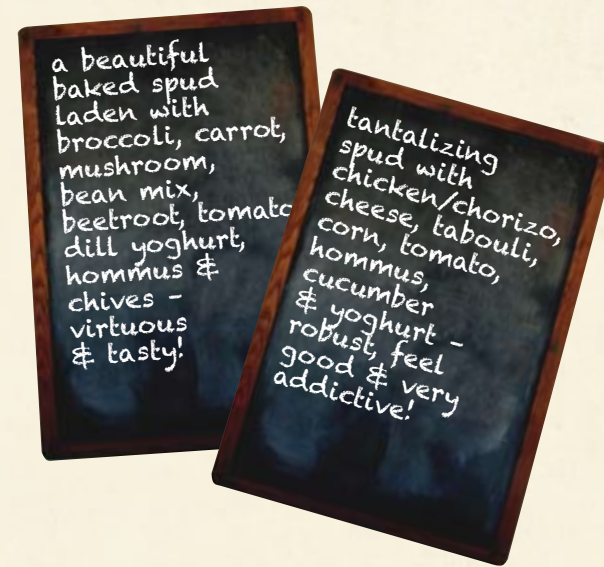 a beautiful
baked spud
laden with
broccoli, carrot,
mushroom,
bean mix,
beetroot, tomato
dill yoghurt,
hommus &
chives -
virtuous
& tasty!
tantalizing
spud with
chicken/chorizo,
cheese, tabouli,
corn, tomato,
hommus,
cucumber
& yoghurt -
robust, feel
good & very
addictive!